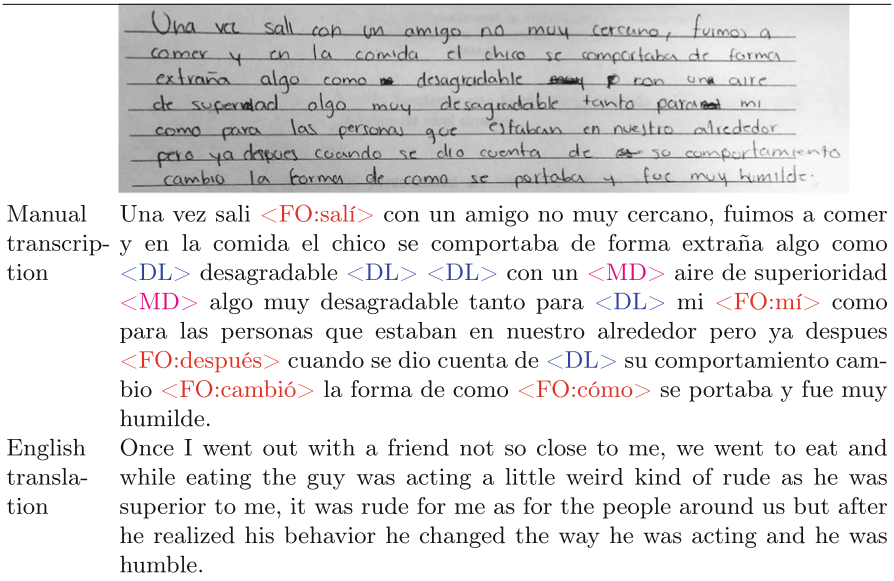 Una vez sali con un amigo no muy cercano, fuimos a
comer y en la comida el chico se comportaba de forma
extraña algo como desagradable con un aire
de superidad algo muy desagradable tanto para mi
como para las personas que estaban en nuestro alrededor
pero ya dspues cuando se dio cuenta de su comportamiento
cambio la forma de como se portaba y fue muy humilde.
Manual Una vez sali <FO:salí> con un amigo no muy cercano, fuimos a comer
transcrip- y en la comida el chico se comportaba de forma extraña algo como
tion <DL> desagradable <DL> <DL> con un <MD> aire de superioridad
<MD> algo muy desagradable tanto para <DL> mi <FO:mí> como
para las personas que estaban en nuestro alrededor pero ya despues
<FO:después> cuando se dio cuenta de <DL> su comportamiento cam-
bio <FO:cambió> la forma de como <FO:cómo> se portaba y fue muy
humilde.
English Once I went out with a friend not so close to me, we went to eat and
transla- while eating the guy was acting a little weird kind of rude as he was
tion superior to me, it was rude for me as for the people around us but after
he realized his behavior he changed the way he was acting and he was
humble.